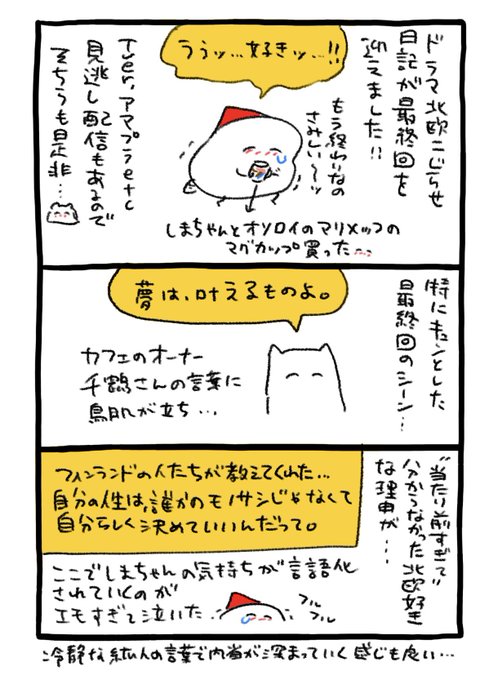 ドラマ北欧こじらせ
日記が最終回を
迎えました!!
うぅッ…好きッ…!!
もう終わりなの
さみしい〜ッ
しまちゃんとオソロイのマリメッコの
マグカップ買った
Tver,アマプラetc
見逃し配信もあるので
そちらも是非…
特にキュンとした
最終回のシーン…
夢は、叶えるものよ。
カフェのオーナー
千鶴さんの言葉に
鳥肌が立ち…
"当たり前すぎて"
分からなかった北欧好き
な理由が…
フィンランドの人たちが教えてくれた…
自分の人生は誰かのモノサシじゃなくて
自分らしく決めていいんだって。
ここでしまちゃんの気持ちが言語化
されていくのが
エモすぎて泣いた
フル
フル
冷静な友人の言葉で内省が深まっていく感じも良い…